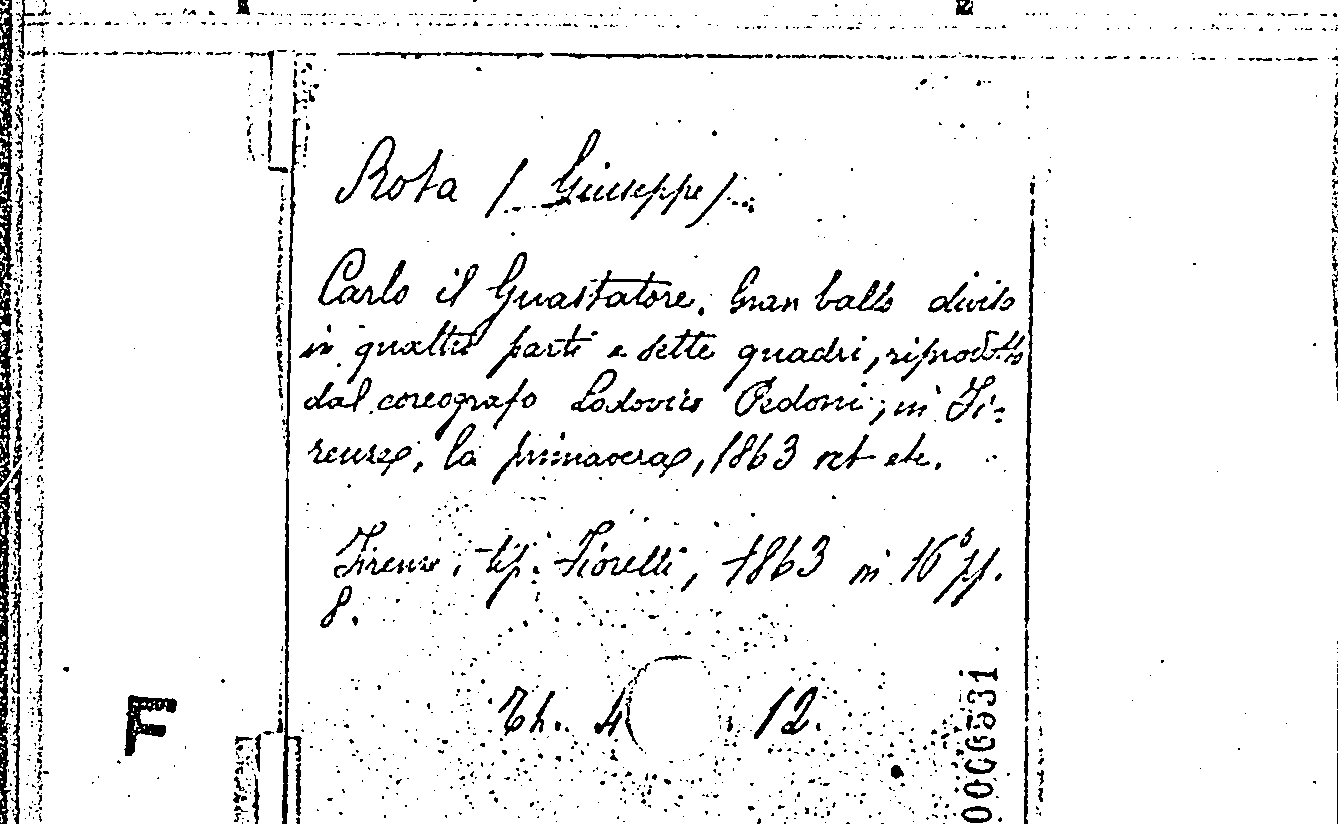 Rota (Giuseppe).
Carlo il Guastatore. Gran ballo diviso
in quattro parti e sette quadri, riprodotto
dal coreografo Lodovico Pedoni, in Fi-
renze, la primavera, 1863 etc.
Firenze, tip. Fiorelli, 1863 in 16° pp.
8.
Th. 4 12.
F